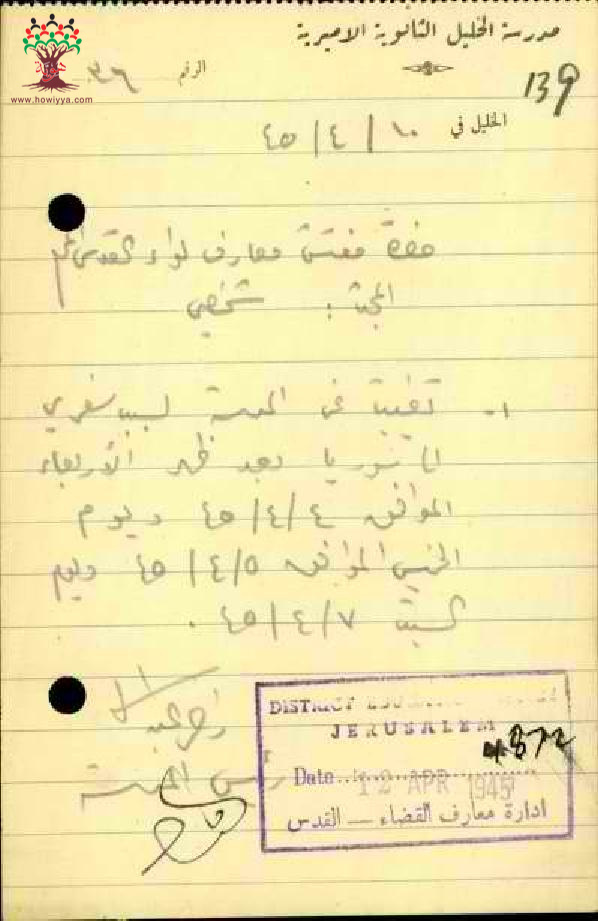 www.howiyya.com
مدرسة الخليل الثانوية الاميرية
139
الرقم ٣٦
الخليل في ١٠/٤/٤٥
حضرة مفتش معارف لواء القدس
المبحث : شخصي
١- تغيبت عن المدرسة لسبب سفري
الى سوريا بعد ظهر الأربعاء
الموافق ٤/٤/٤٥ ويوم
الخميس الموافق ٥/٤/٤٥ ويوم
السبت ٧/٤/٤٥ .
رئيس المدرسة
DISTRICT EDUCATION
JERUSALEM
4872
Date 12 APR 1945
ادارة معارف القضاء — القدس